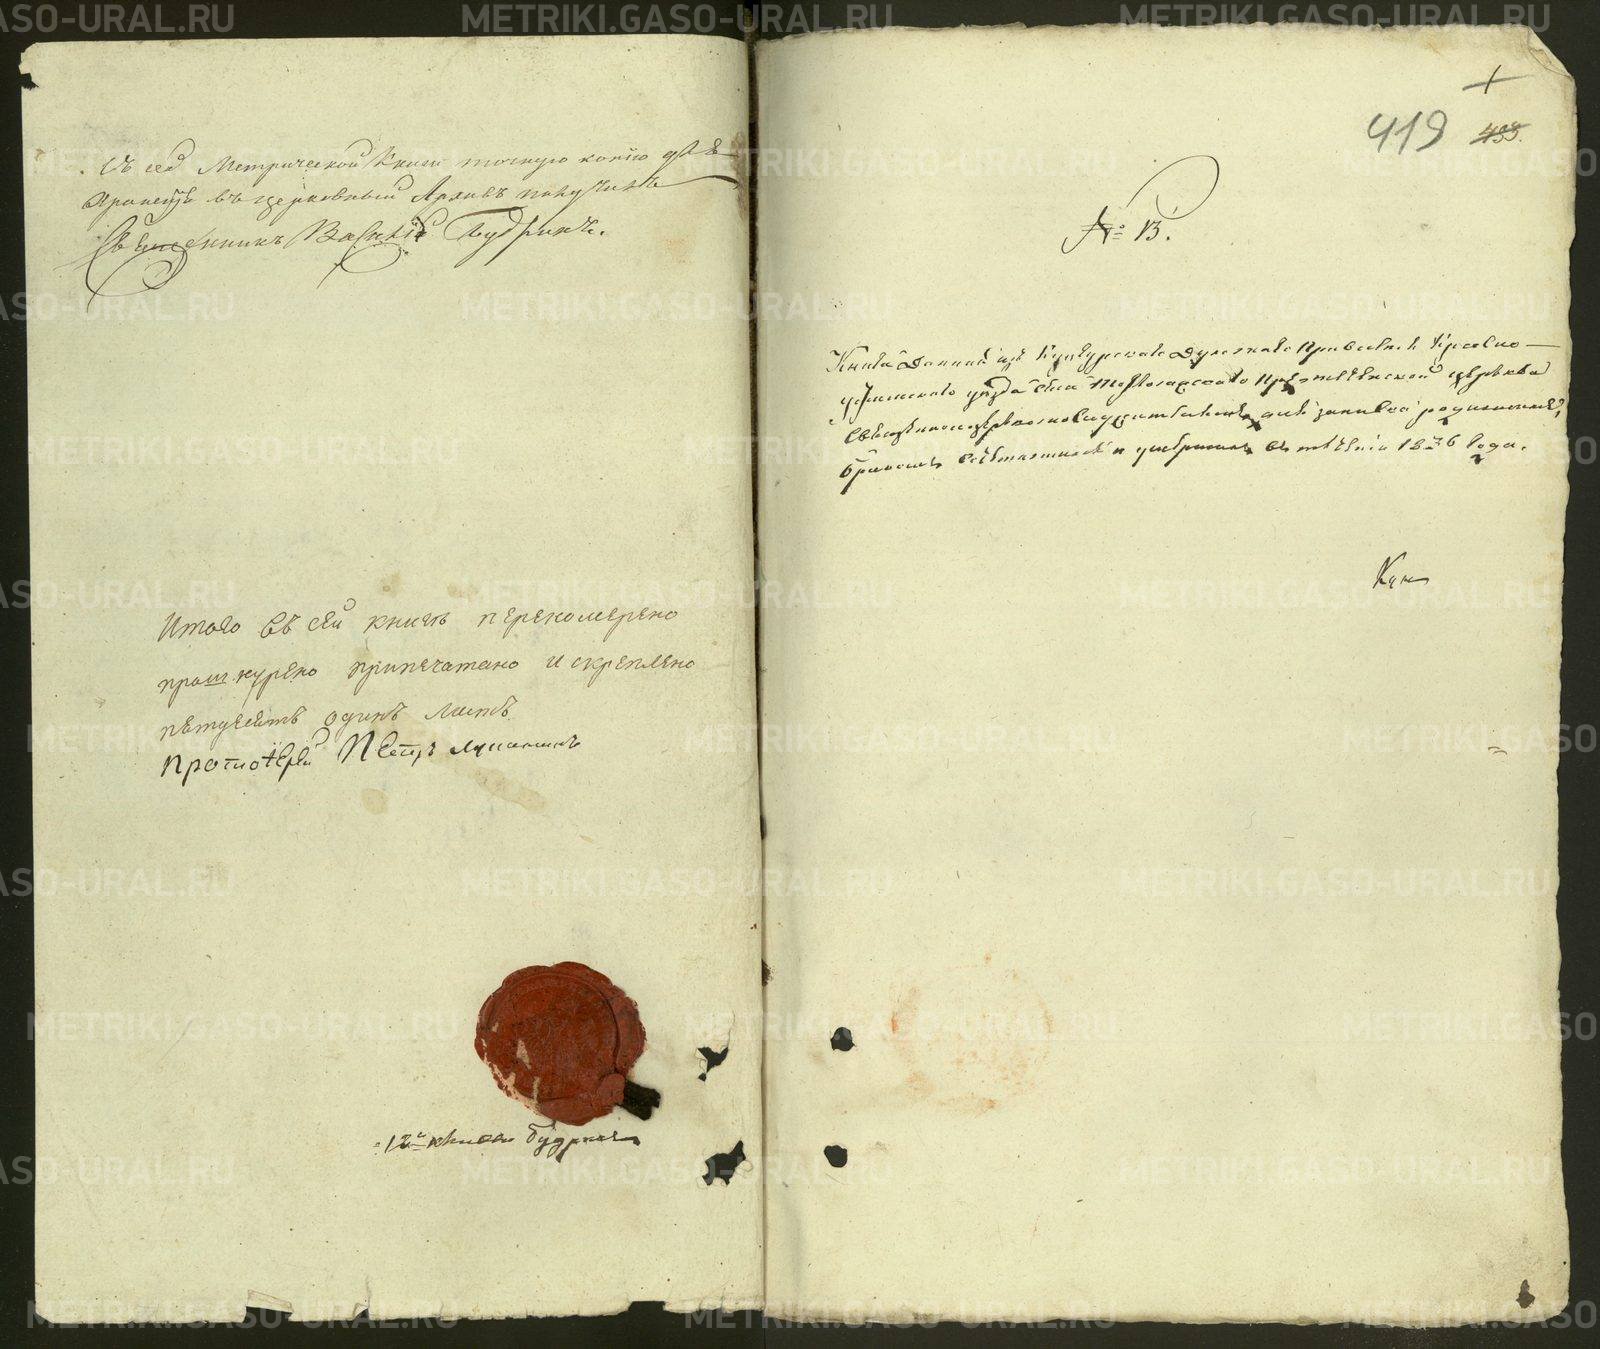 Съ сей Метрической Книги точную копію для
храненія въ церковный Архивъ получилъ
Священникъ Василій Будринъ.
Итого въ сей книгѣ переномерено
прошнурено припечатано и скреплено
пятдесятъ одинъ листъ
Протоіерей Петръ Лукан
12я книга Будрина
419
№ 13.
Книга Данная изъ Кунгурскаго Духовнаго Правленія Красно-
уфимскаго уѣзда села Торговижскаго церкви
Священноцерковнослужителямъ для записки родившихся,
бракомъ сочетавшихся и умершихъ въ теченіи 1836 года.
METRIKI.GASO-URAL.RU